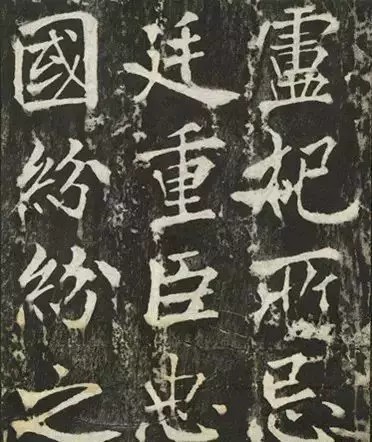 盧杞所忌
廷重臣忠
國紛紛之